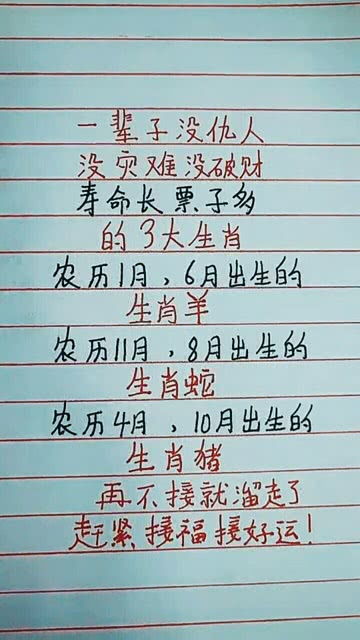 一辈子没仇人
没灾难没破财
寿命长票子多
的3大生肖
农历1月，6月出生的
生肖羊
农历11月，8月出生的
生肖蛇
农历4月，10月出生的
生肖猪
再不接就溜走了
赶紧接福接好运！